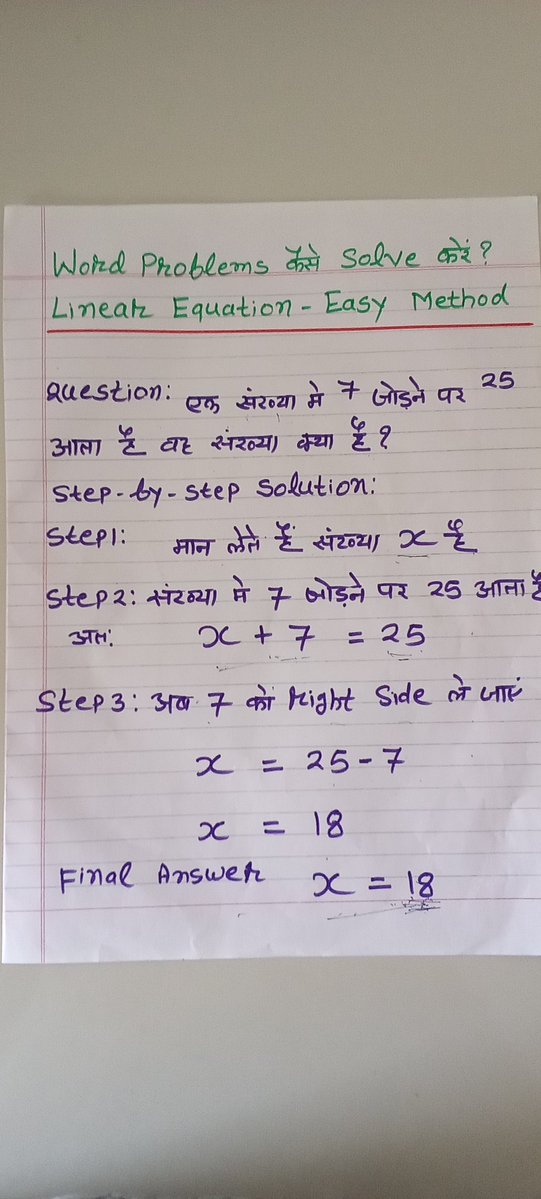 Word Problems कैसे Solve करें?
Linear Equation - Easy Method
Question: एक संख्या मे 7 जोड़ने पर 25
आता है वह संख्या क्या है?
Step-by-Step Solution:
Step1: मान लेते हैं संख्या x है
Step2: संख्या मे 7 जोड़ने पर 25 आता है
अतः x + 7 = 25
Step3: अब 7 को Right Side ले जाएं
x = 25 - 7
x = 18
Final Answer x = 18